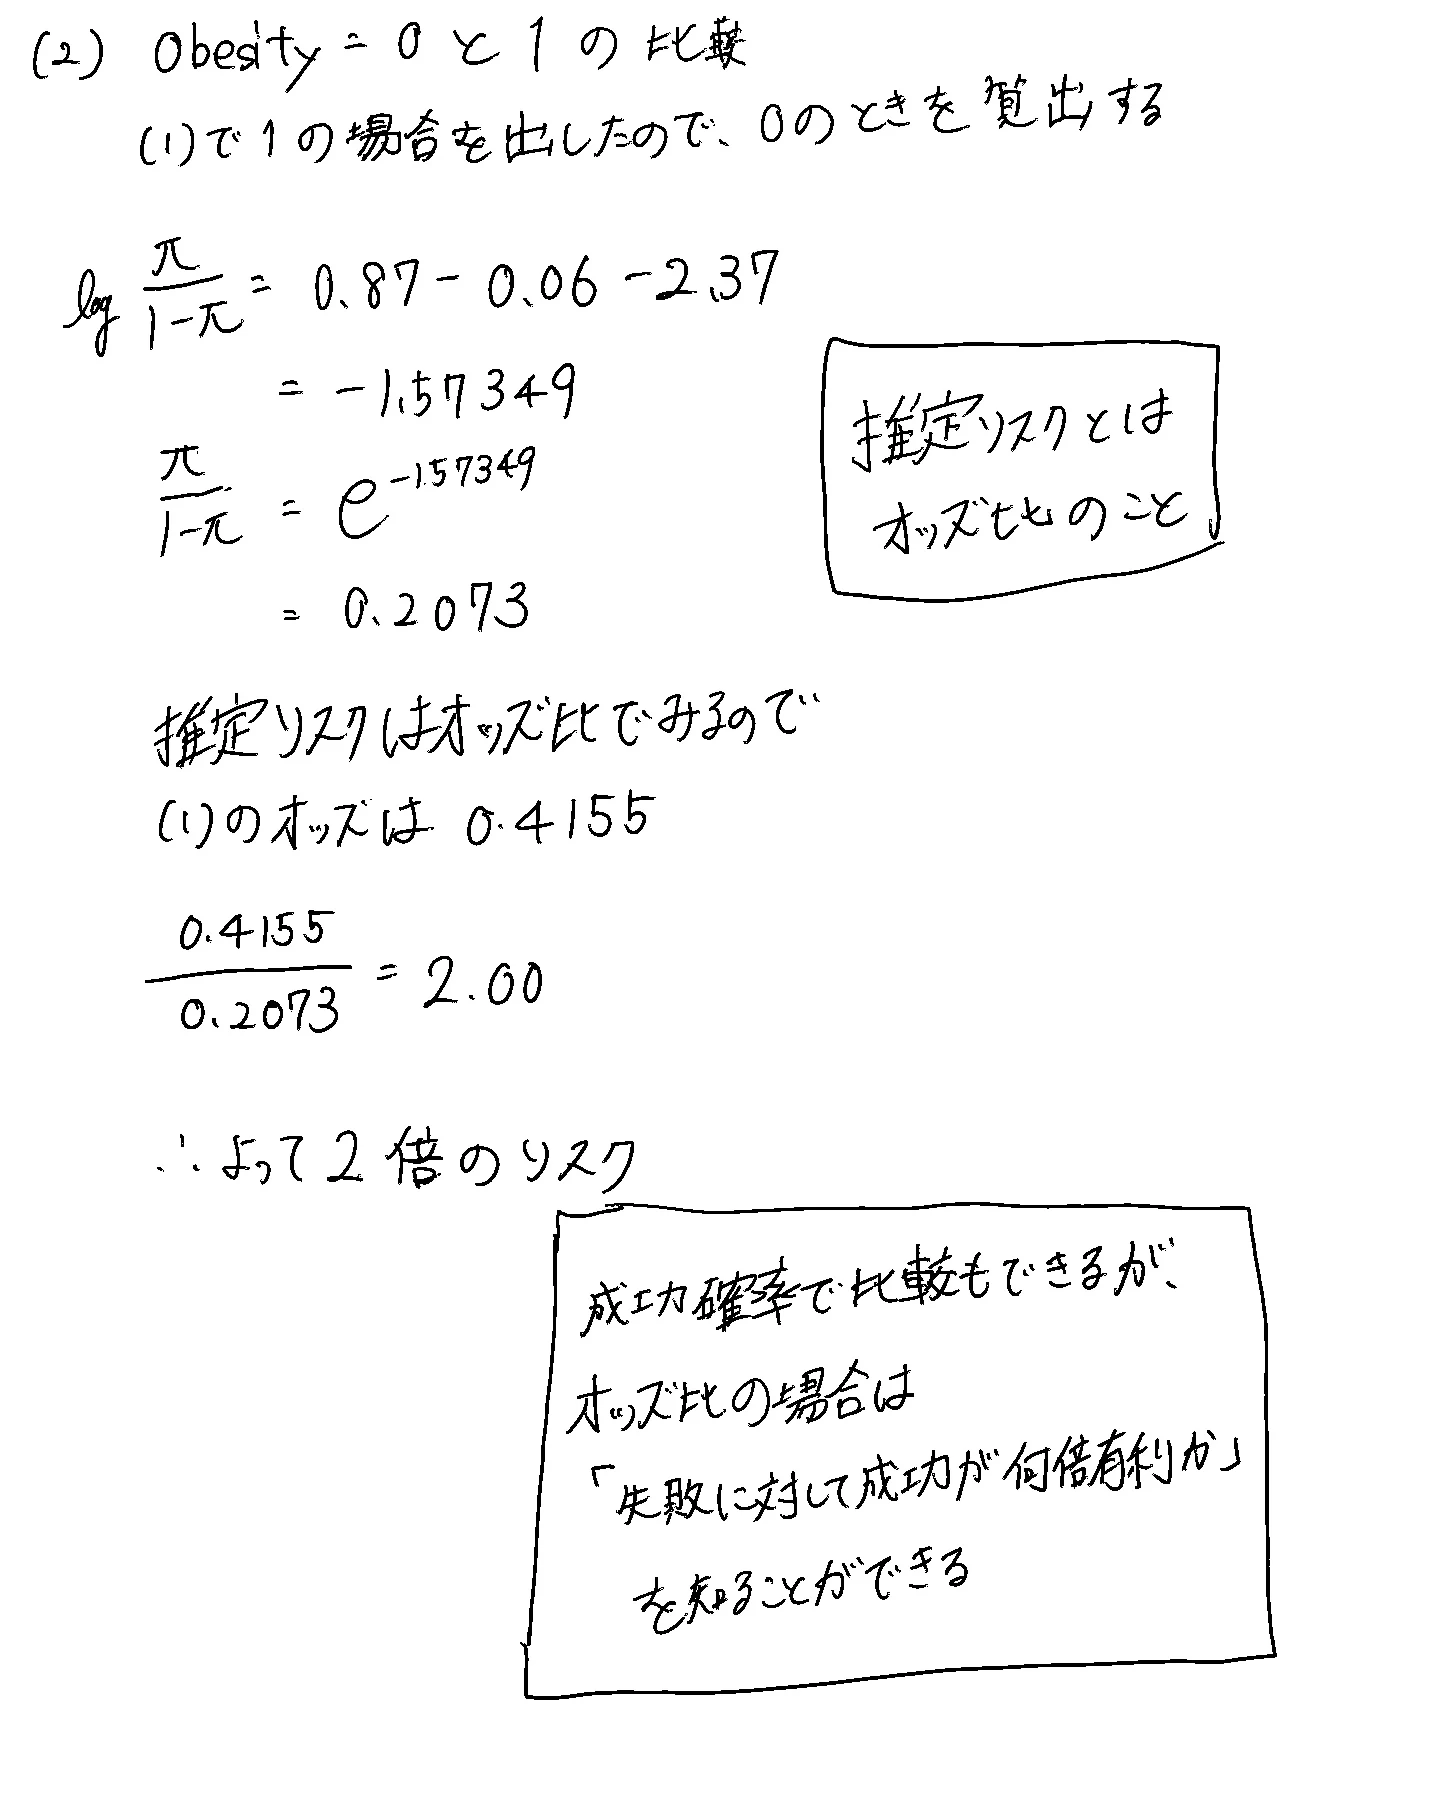 (2) Obesity = 0 と 1 の 比較
(1)で 1 の場合を出したので、0のときを算出する
log π/1-π = 0.87 - 0.06 - 2.37
= -1.57349
π/1-π = e^-1.57349
= 0.2073
推定リスクとは
オッズ比のこと
推定リスクはオッズ比でみるので
(1)のオッズは 0.4155
0.4155/0.2073 = 2.00
∴よって2倍のリスク
成功確率で比較もできるが、
オッズ比の場合は
「失敗に対して成功が何倍有利か」
を知ることができる